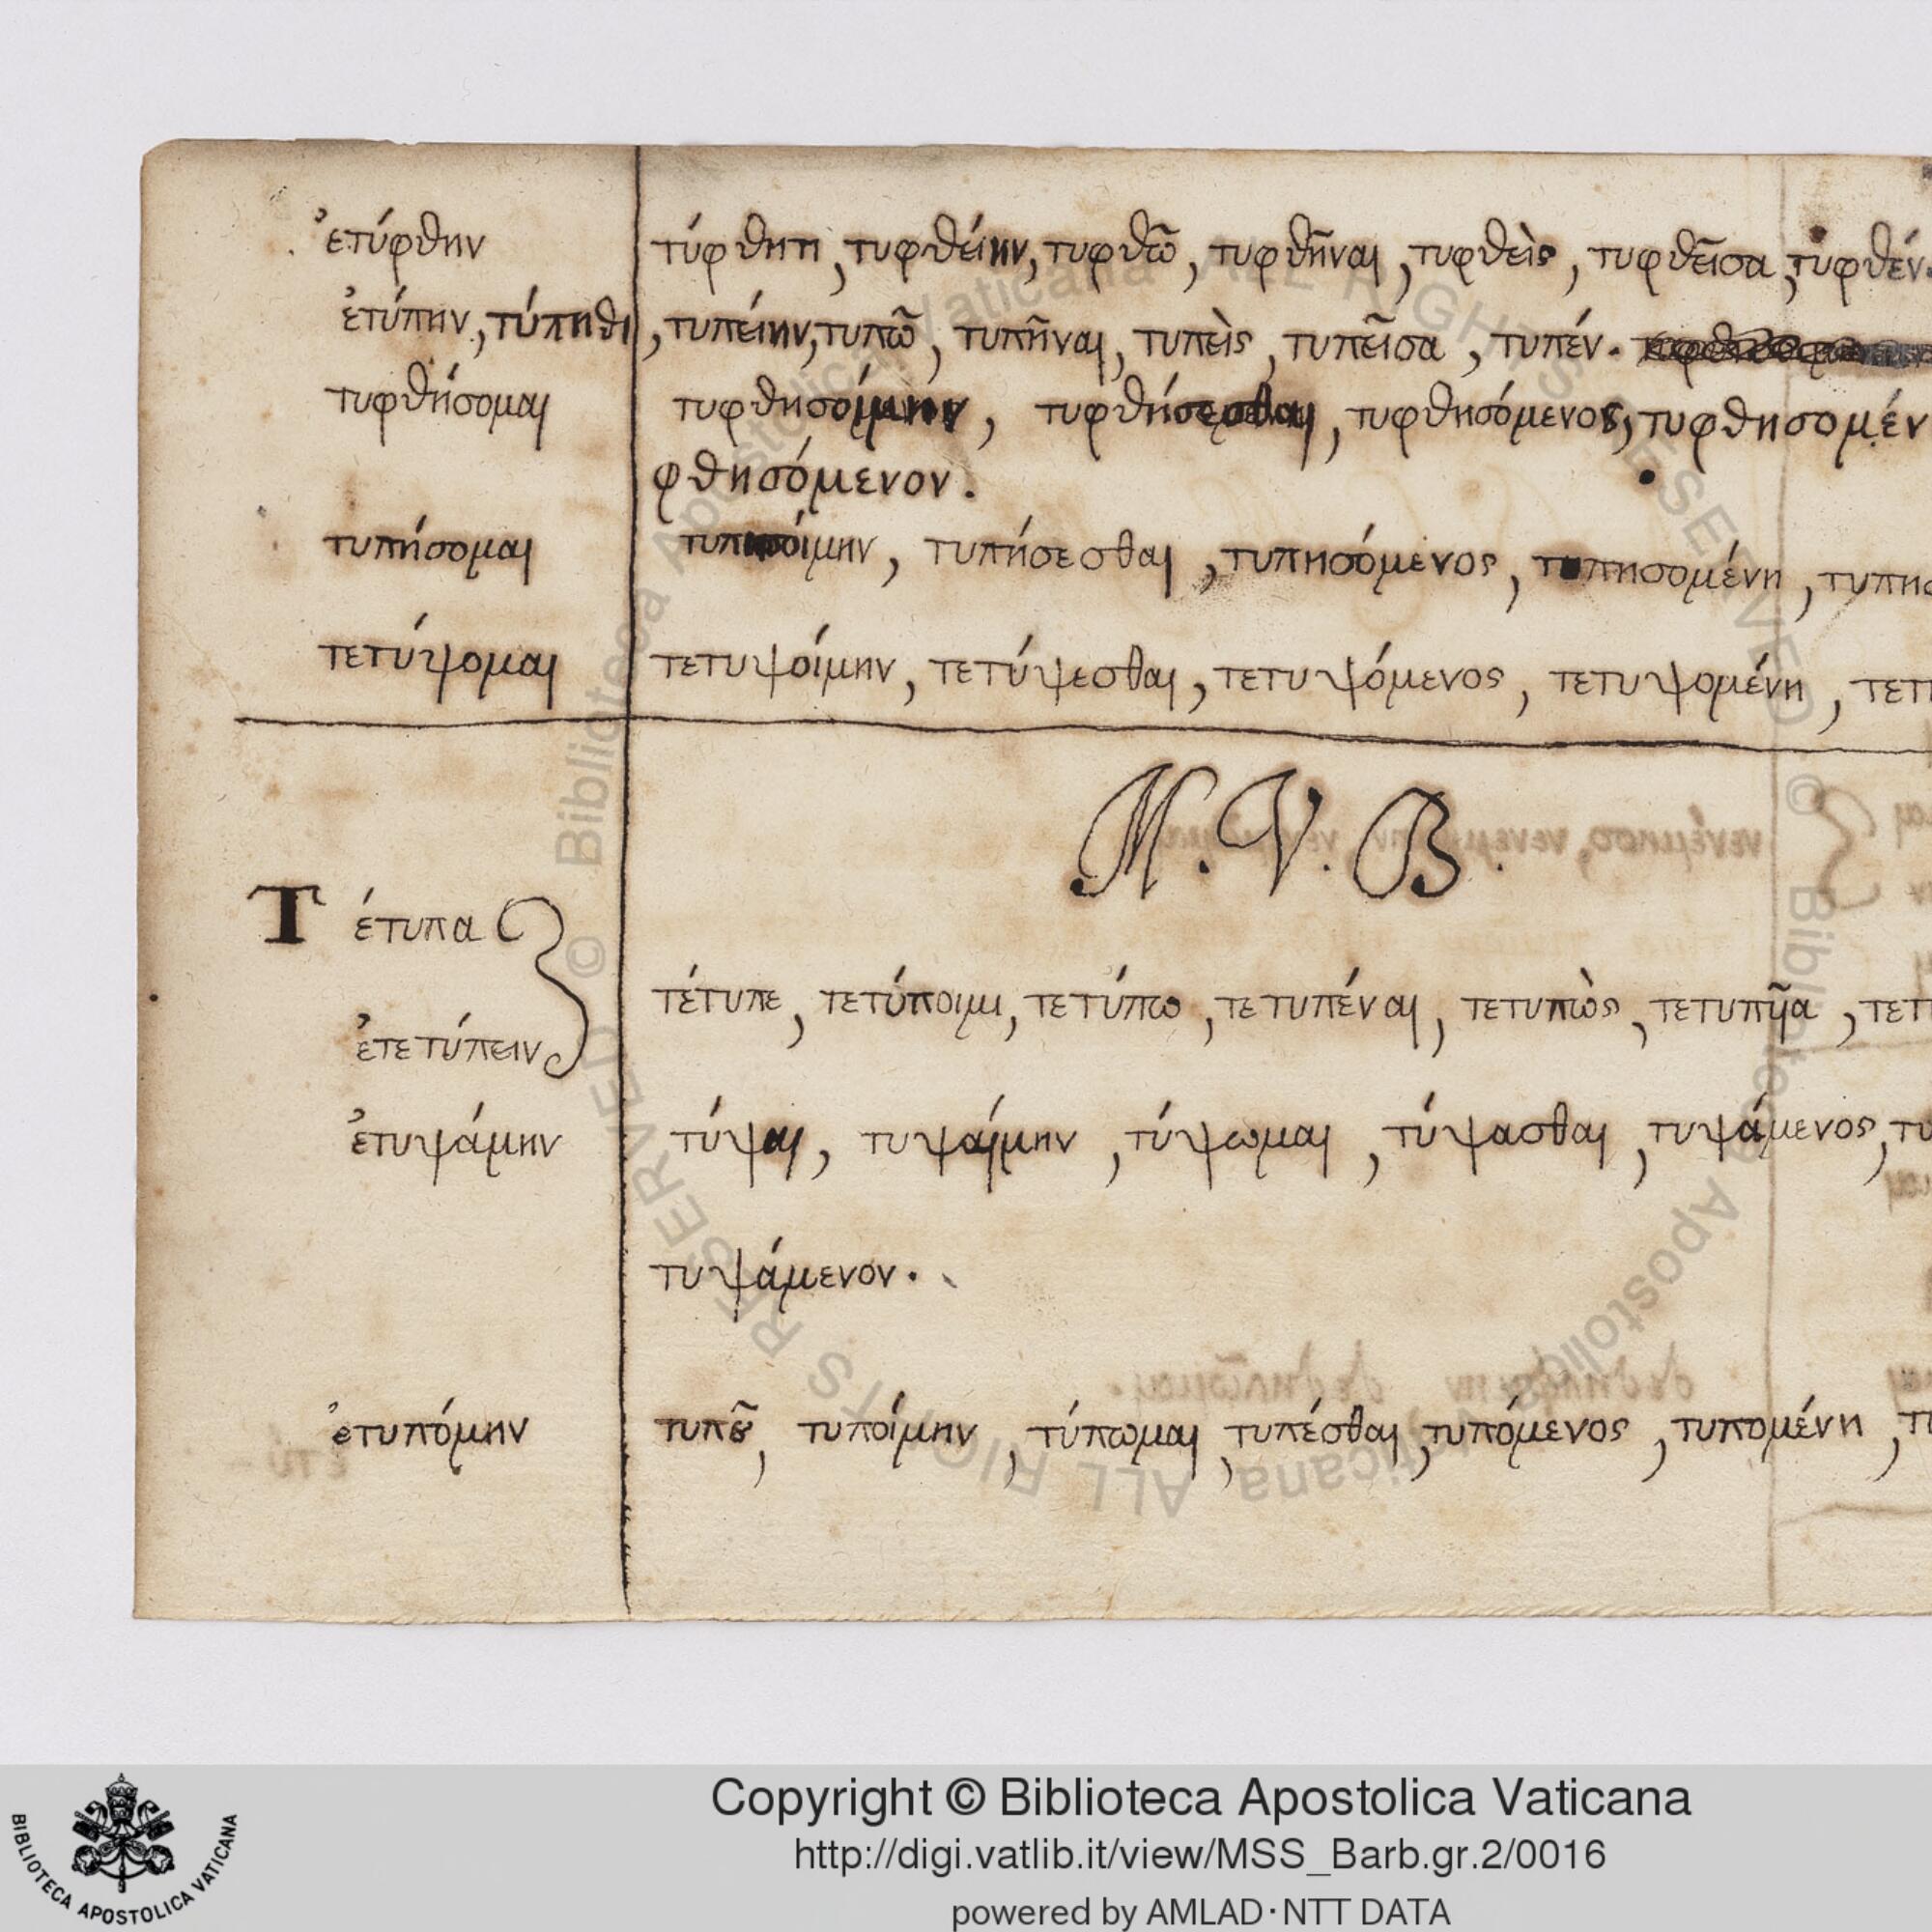 ἐτύφθην τύφθητι, τυφθείην, τυφθῶ, τυφθῆναι, τυφθεὶς, τυφθεῖσα, τυφθέν.
ἐτύπην, τύπηθι, τυπείην, τυπῶ, τυπῆναι, τυπεὶς, τυπεῖσα, τυπέν.
τυφθήσομαι τυφθησοίμην, τυφθήσεσθαι, τυφθησόμενος, τυφθησομέν
φθησόμενον.
τυπήσομαι τυπησοίμην, τυπήσεσθαι, τυπησόμενος, τυπησομένη, τυπησ
τετύψομαι τετυψοίμην, τετύψεσθαι, τετυψόμενος, τετυψομένη, τετυ
M. V. B.
Τέτυπα
τέτυπε, τετύποιμι, τετύπω, τετυπέναι, τετυπὼς, τετυπῆα, τετυ
ἐτετύπειν
ἐτυψάμην τύψαι, τυψαίμην, τύψωμαι, τύψασθαι, τυψάμενος, τυ
τυψάμενον.
ἐτυπόμην τυποῦ, τυποίμην, τύπωμαι, τυπέσθαι, τυπόμενος, τυπομένη, τυ
Copyright © Biblioteca Apostolica Vaticana
http://digi.vatlib.it/view/MSS_Barb.gr.2/0016
powered by AMLAD·NTT DATA
BIBLIOTECA APOSTOLICA VATICANA